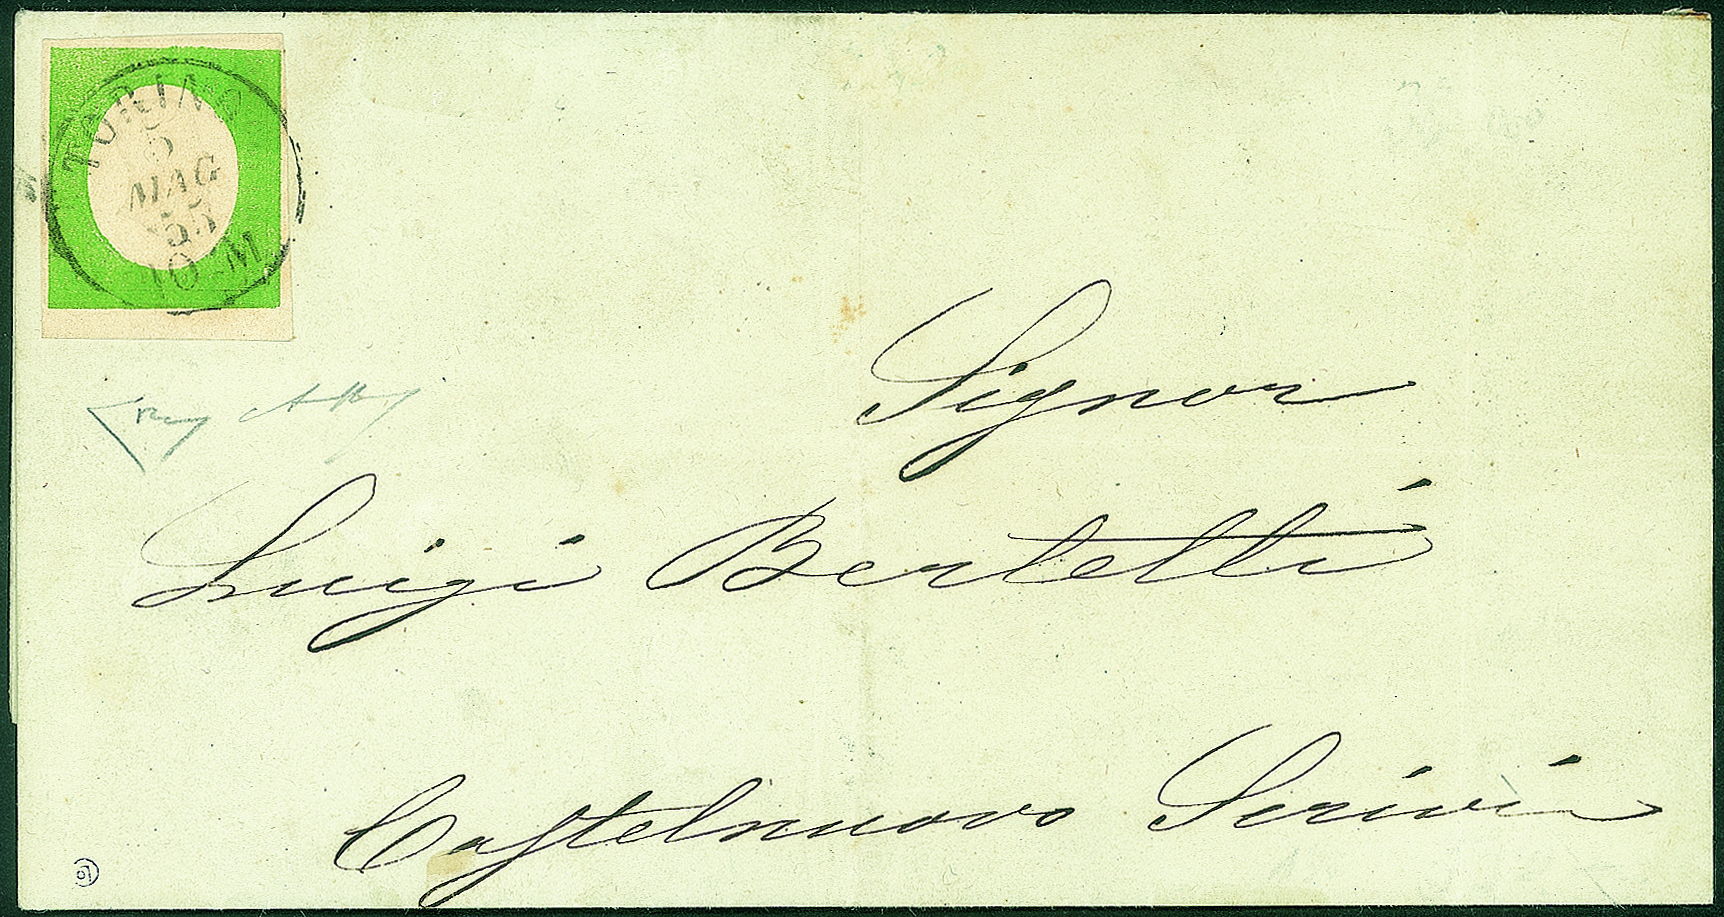 TORINO
5
MAG
55
10 M
Signor
Luigi Bertetti
Castelnuovo Scrivia